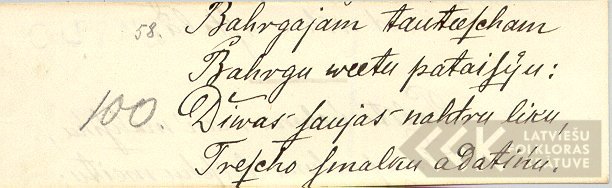 58. Bahrgajam tauteescham
Bahrgu weetu pataisiju:
100. Diwas saujas nahtru liku,
Trescho smalku adatinu.
LATVIEŠU
FOLKLORAS
KRĀTUVE